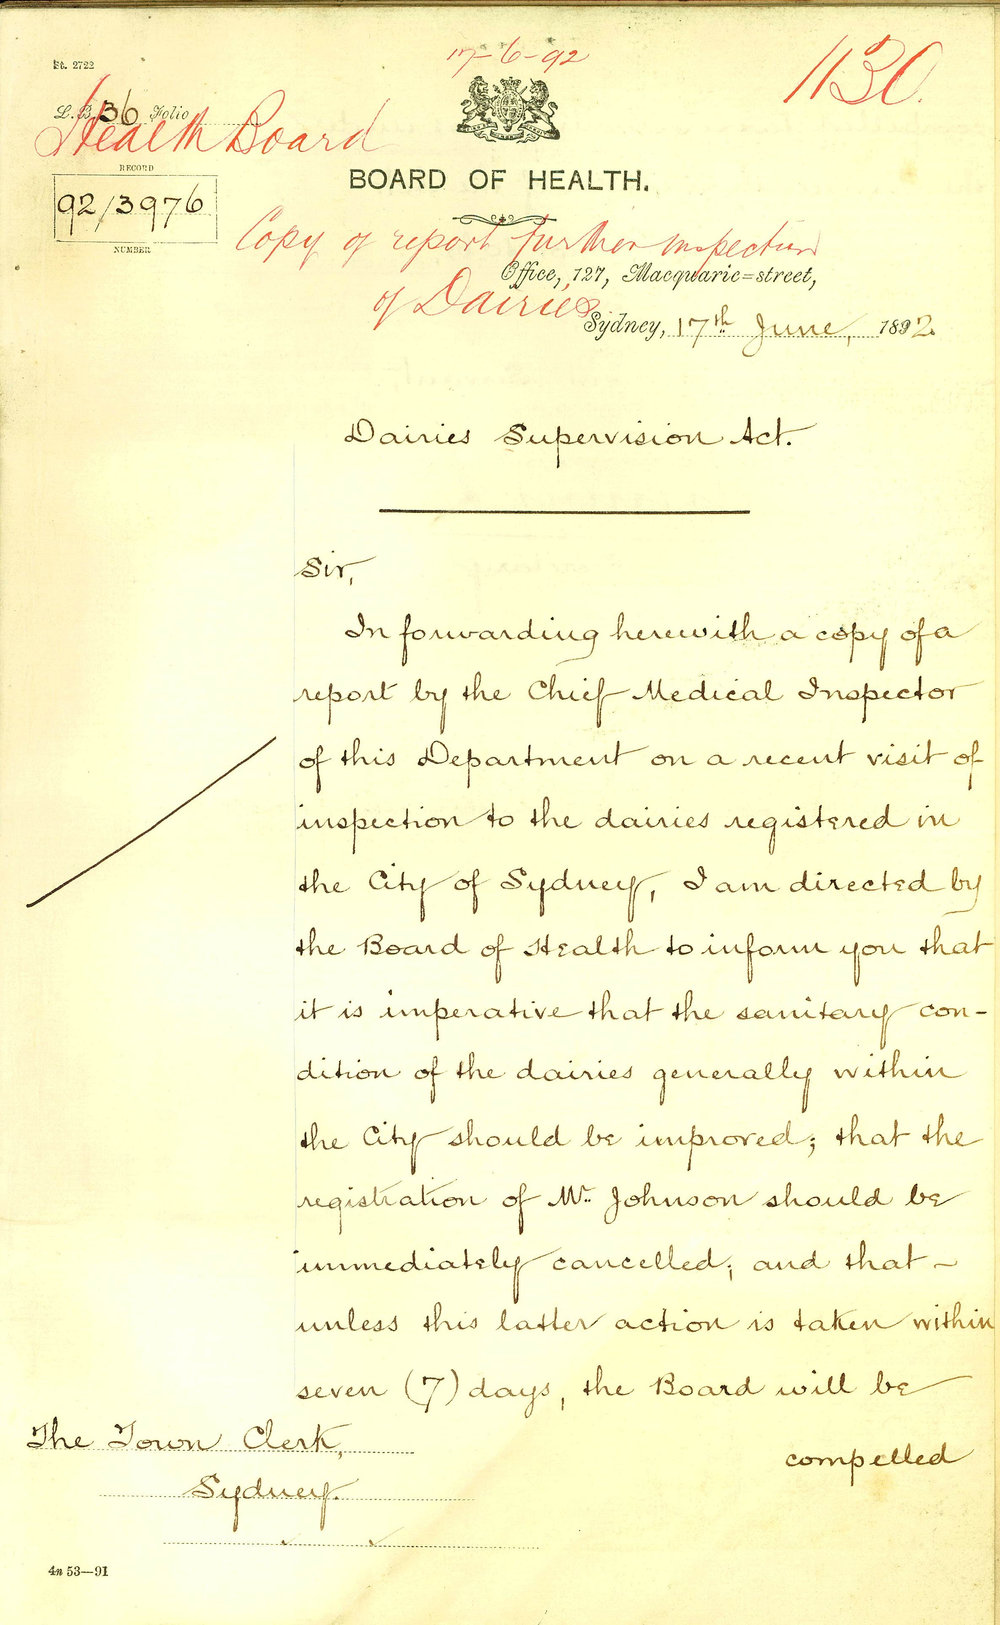 St. 2722
17-6-92
1130.
L. B. 36 Folio
Health Board
RECORD
92/3976
NUMBER
BOARD OF HEALTH.
Copy of report further inspection
of Dairies
Office, 127, Macquarie=street,
Sydney, 17th June, 1892.
Dairies Supervision Act.
Sir,
In forwarding herewith a copy of a
report by the Chief Medical Inspector
of this Department on a recent visit of
inspection to the dairies registered in
the City of Sydney, I am directed by
the Board of Health to inform you that
it is imperative that the sanitary con-
dition of the dairies generally within
the City should be improved; that the
registration of Mr. Johnson should be
immediately cancelled; and that ~
unless this latter action is taken within
seven (7) days, the Board will be
compelled
The Town Clerk,
Sydney.
4n 53—91